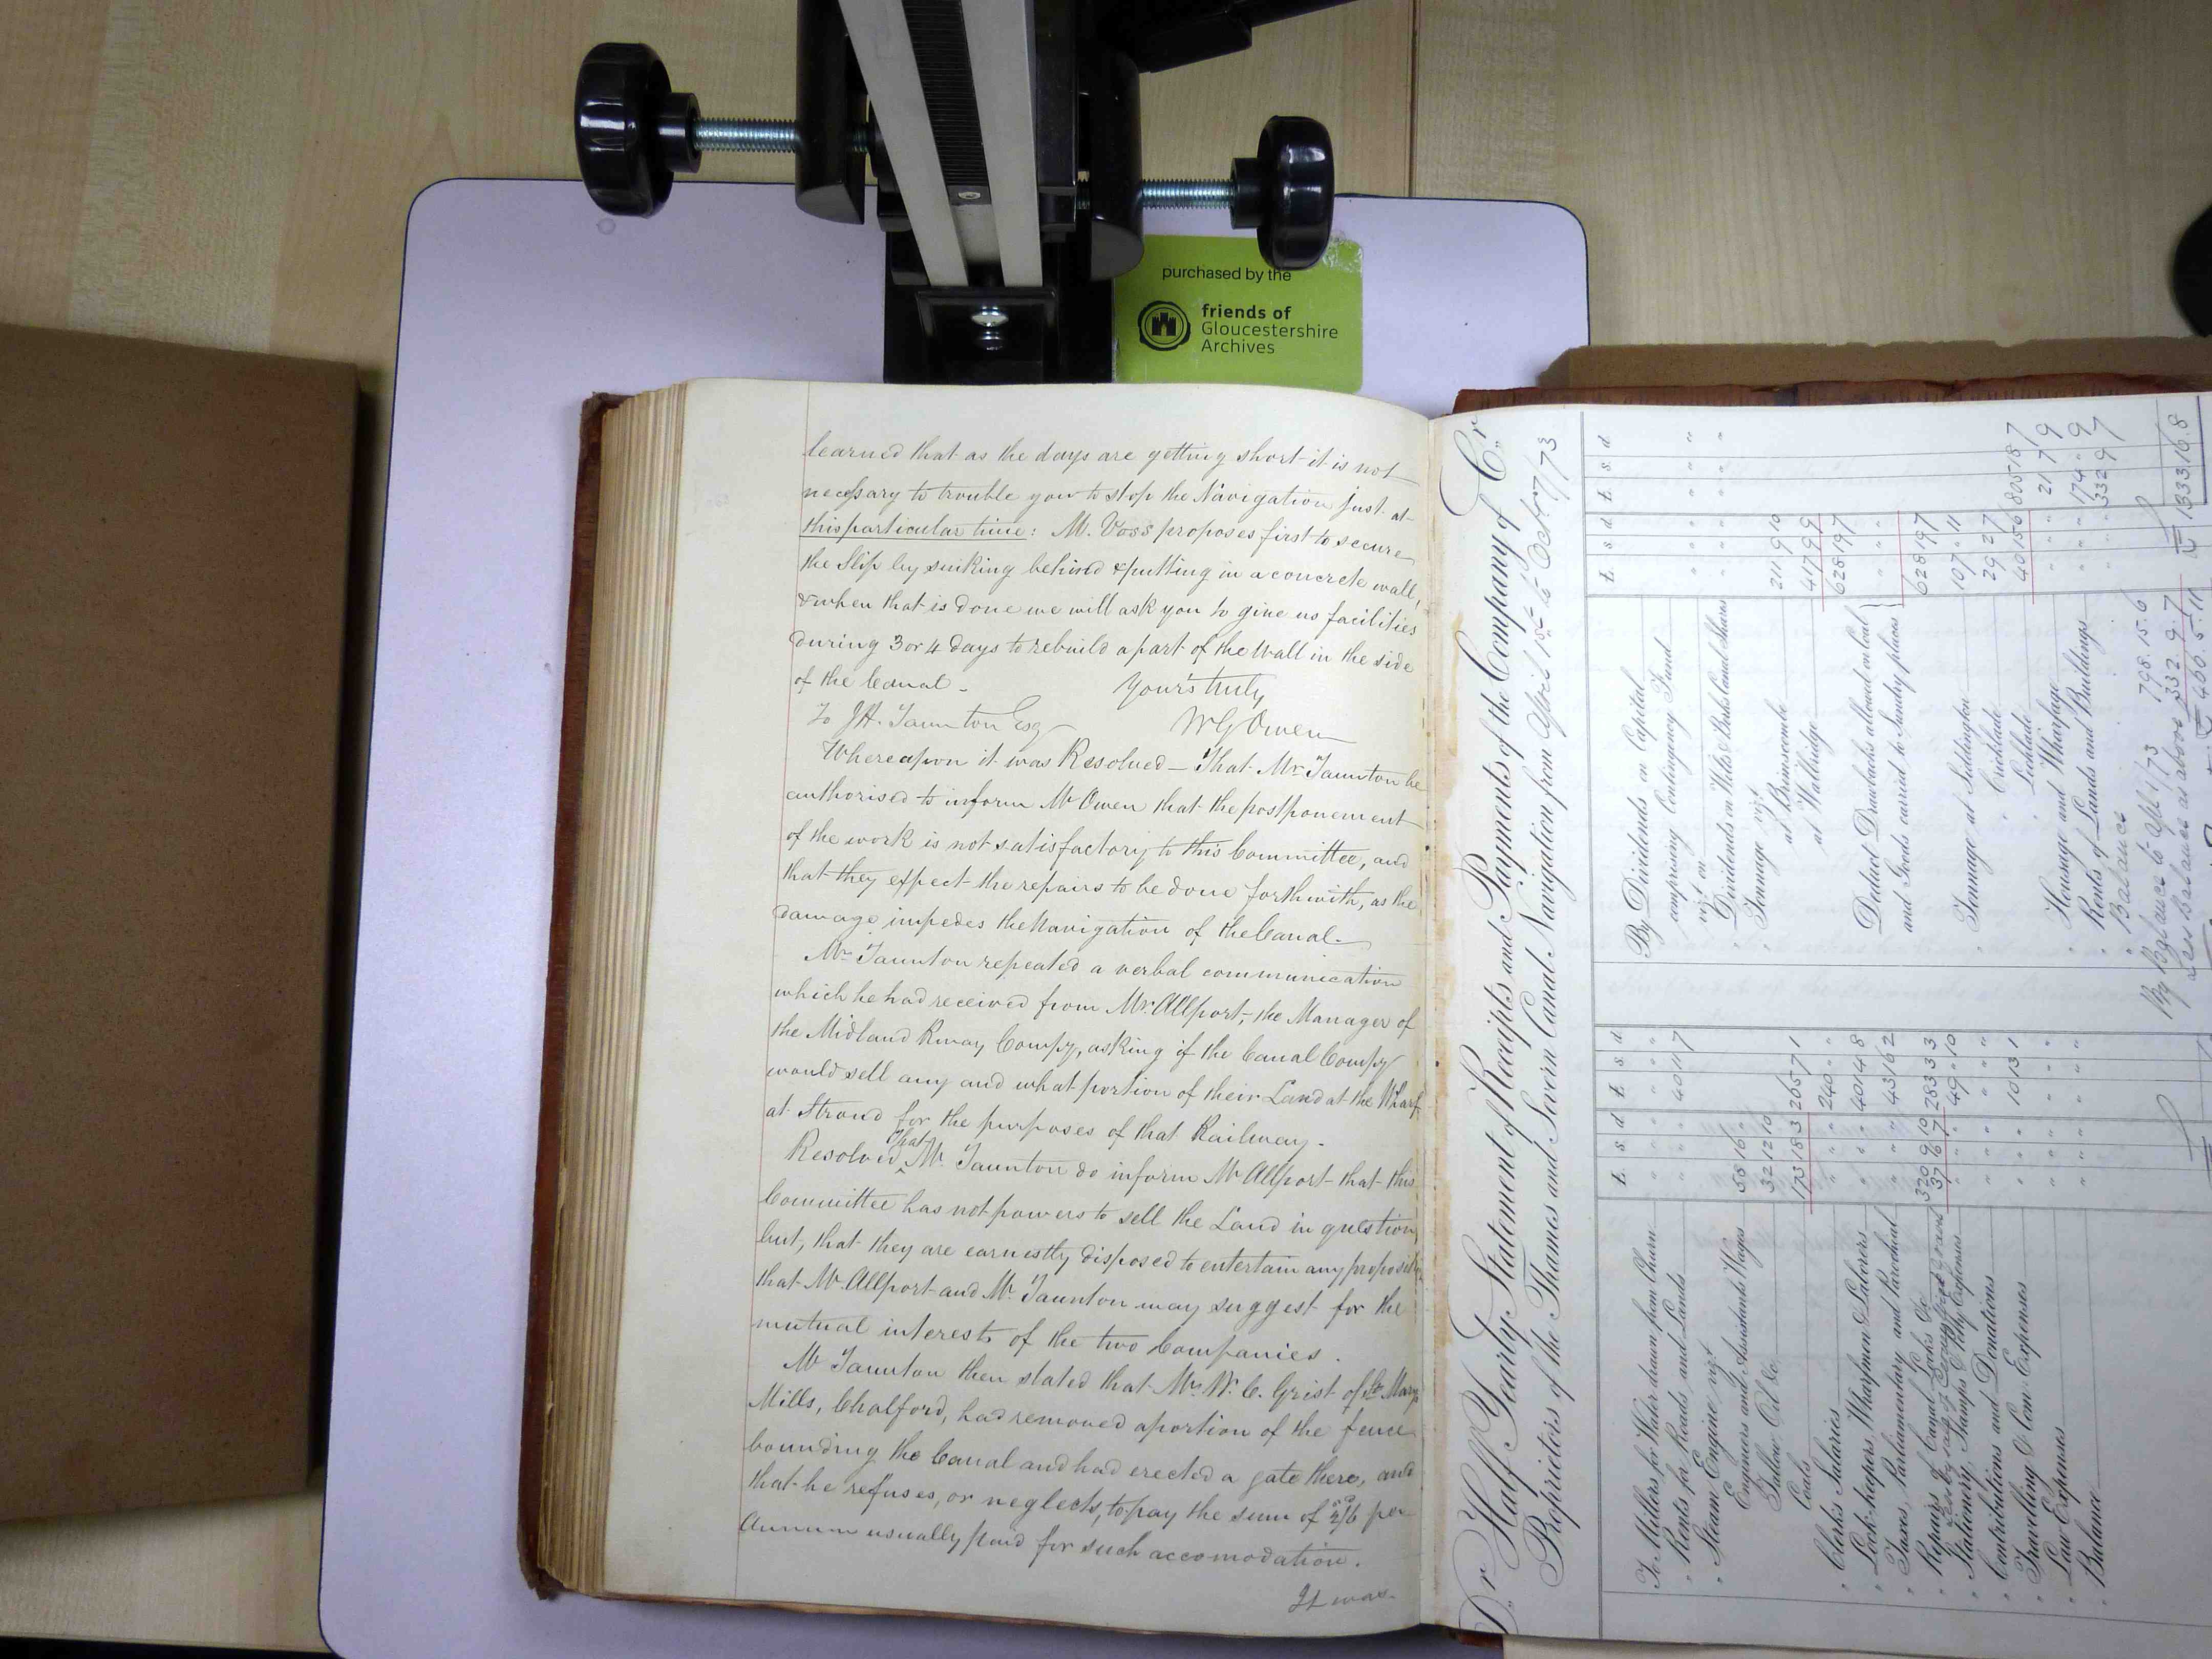 purchased by the
friends of
Gloucestershire
Archives
learned that as the days are getting short it is not
necessary to trouble you to stop the Navigation just at
this particular time: Mr. Voss proposes first to secure
the Slip by sinking behind & putting in a concrete wall,
& when that is done we will ask you to give us facilities
during 3 or 4 days to rebuild a part of the Wall in the side
of the Canal - Yours truly
To J.H. Taunton Esq W G Owen
Whereupon it was Resolved - That Mr Taunton be
authorised to inform Mr Owen that the postponement
of the work is not satisfactory to this Committee, and
that they expect the repairs to be done forthwith, as the
damage impedes the Navigation of the Canal.
Mr Taunton repeated a verbal communication
which he had received from Mr. Allport, the Manager of
the Midland Rway Compy, asking if the Canal Compy
would sell any and what portion of their Land at the Wharf
at Stroud for the purposes of that Railway.
Resolved That Mr. Taunton do inform Mr Allport that this
Committee has not powers to sell the Land in question,
but, that they are earnestly disposed to entertain any proposition
that Mr Allport and Mr. Taunton may suggest for the
mutual interests of the two Companies.
Mr Taunton then stated that Mr W. C. Grist of St Mary
Mills, Chalford, had removed a portion of the fence
bounding the Canal and had erected a gate there, and
that he refuses, or neglects, to pay the sum of 2/6 per
Annum usually paid for such accomodation.
It was
Dr Half Yearly Statement of Receipts and Payments of the Company of Cr
Proprietors of the Thames and Severn Canal Navigation from April 1st to Octr 7/73
£ s d £ s d
To Millers for Water drawn from Churn " " " " "
" Rents for Roads and Lands " " " 40 11 7
" Steam Engine vizt
Engineers and Assistants Wages 58 16 "
Tallow Oil &c 32 12 10
Coals 173 18 3 265 7 1
" Clerks Salaries " " 240 " "
" Lock-keepers, Wharfmen & Laborers " " 401 4 8
" Taxes, Parliamentary and Parochial " " 43 16 2
" Repairs of Canal Locks &c 320 9 10 283 3 3
37 6 7
" Stationery, Stamps & Petty Expenses " " 49 " 10
" Contributions and Donations " " " "
" Travelling & Com. Expenses " " 10 13 1
" Law Expenses " " " "
" Balance " " " "
£ s d £ s d
By Dividends on Capital
comprising Contingency Fund
vizt on " " " "
" Dividends on Wilts & Berks Canal Shares " " " "
" Tonnage vizt
at Brimscombe 211 9 10
at Wallbridge 417 9 9
628 19 7
Deduct Drawbacks allowed on Coal
and Goods carried to Sundry places " "
628 19 7
" Tonnage at Siddington 107 " 11
" Cricklade 29 2 7
" Lechlade 40 15 6 805 18 7
" Housage and Wharfage " " 21 7 9
" Rents of Lands and Buildings " " 174 " 9
" Balance " " 332 9 7
£ 1333 16. 8
By Balance to Apl 1/73 798. 15. 6
Less Balance as above 332. 9. 7